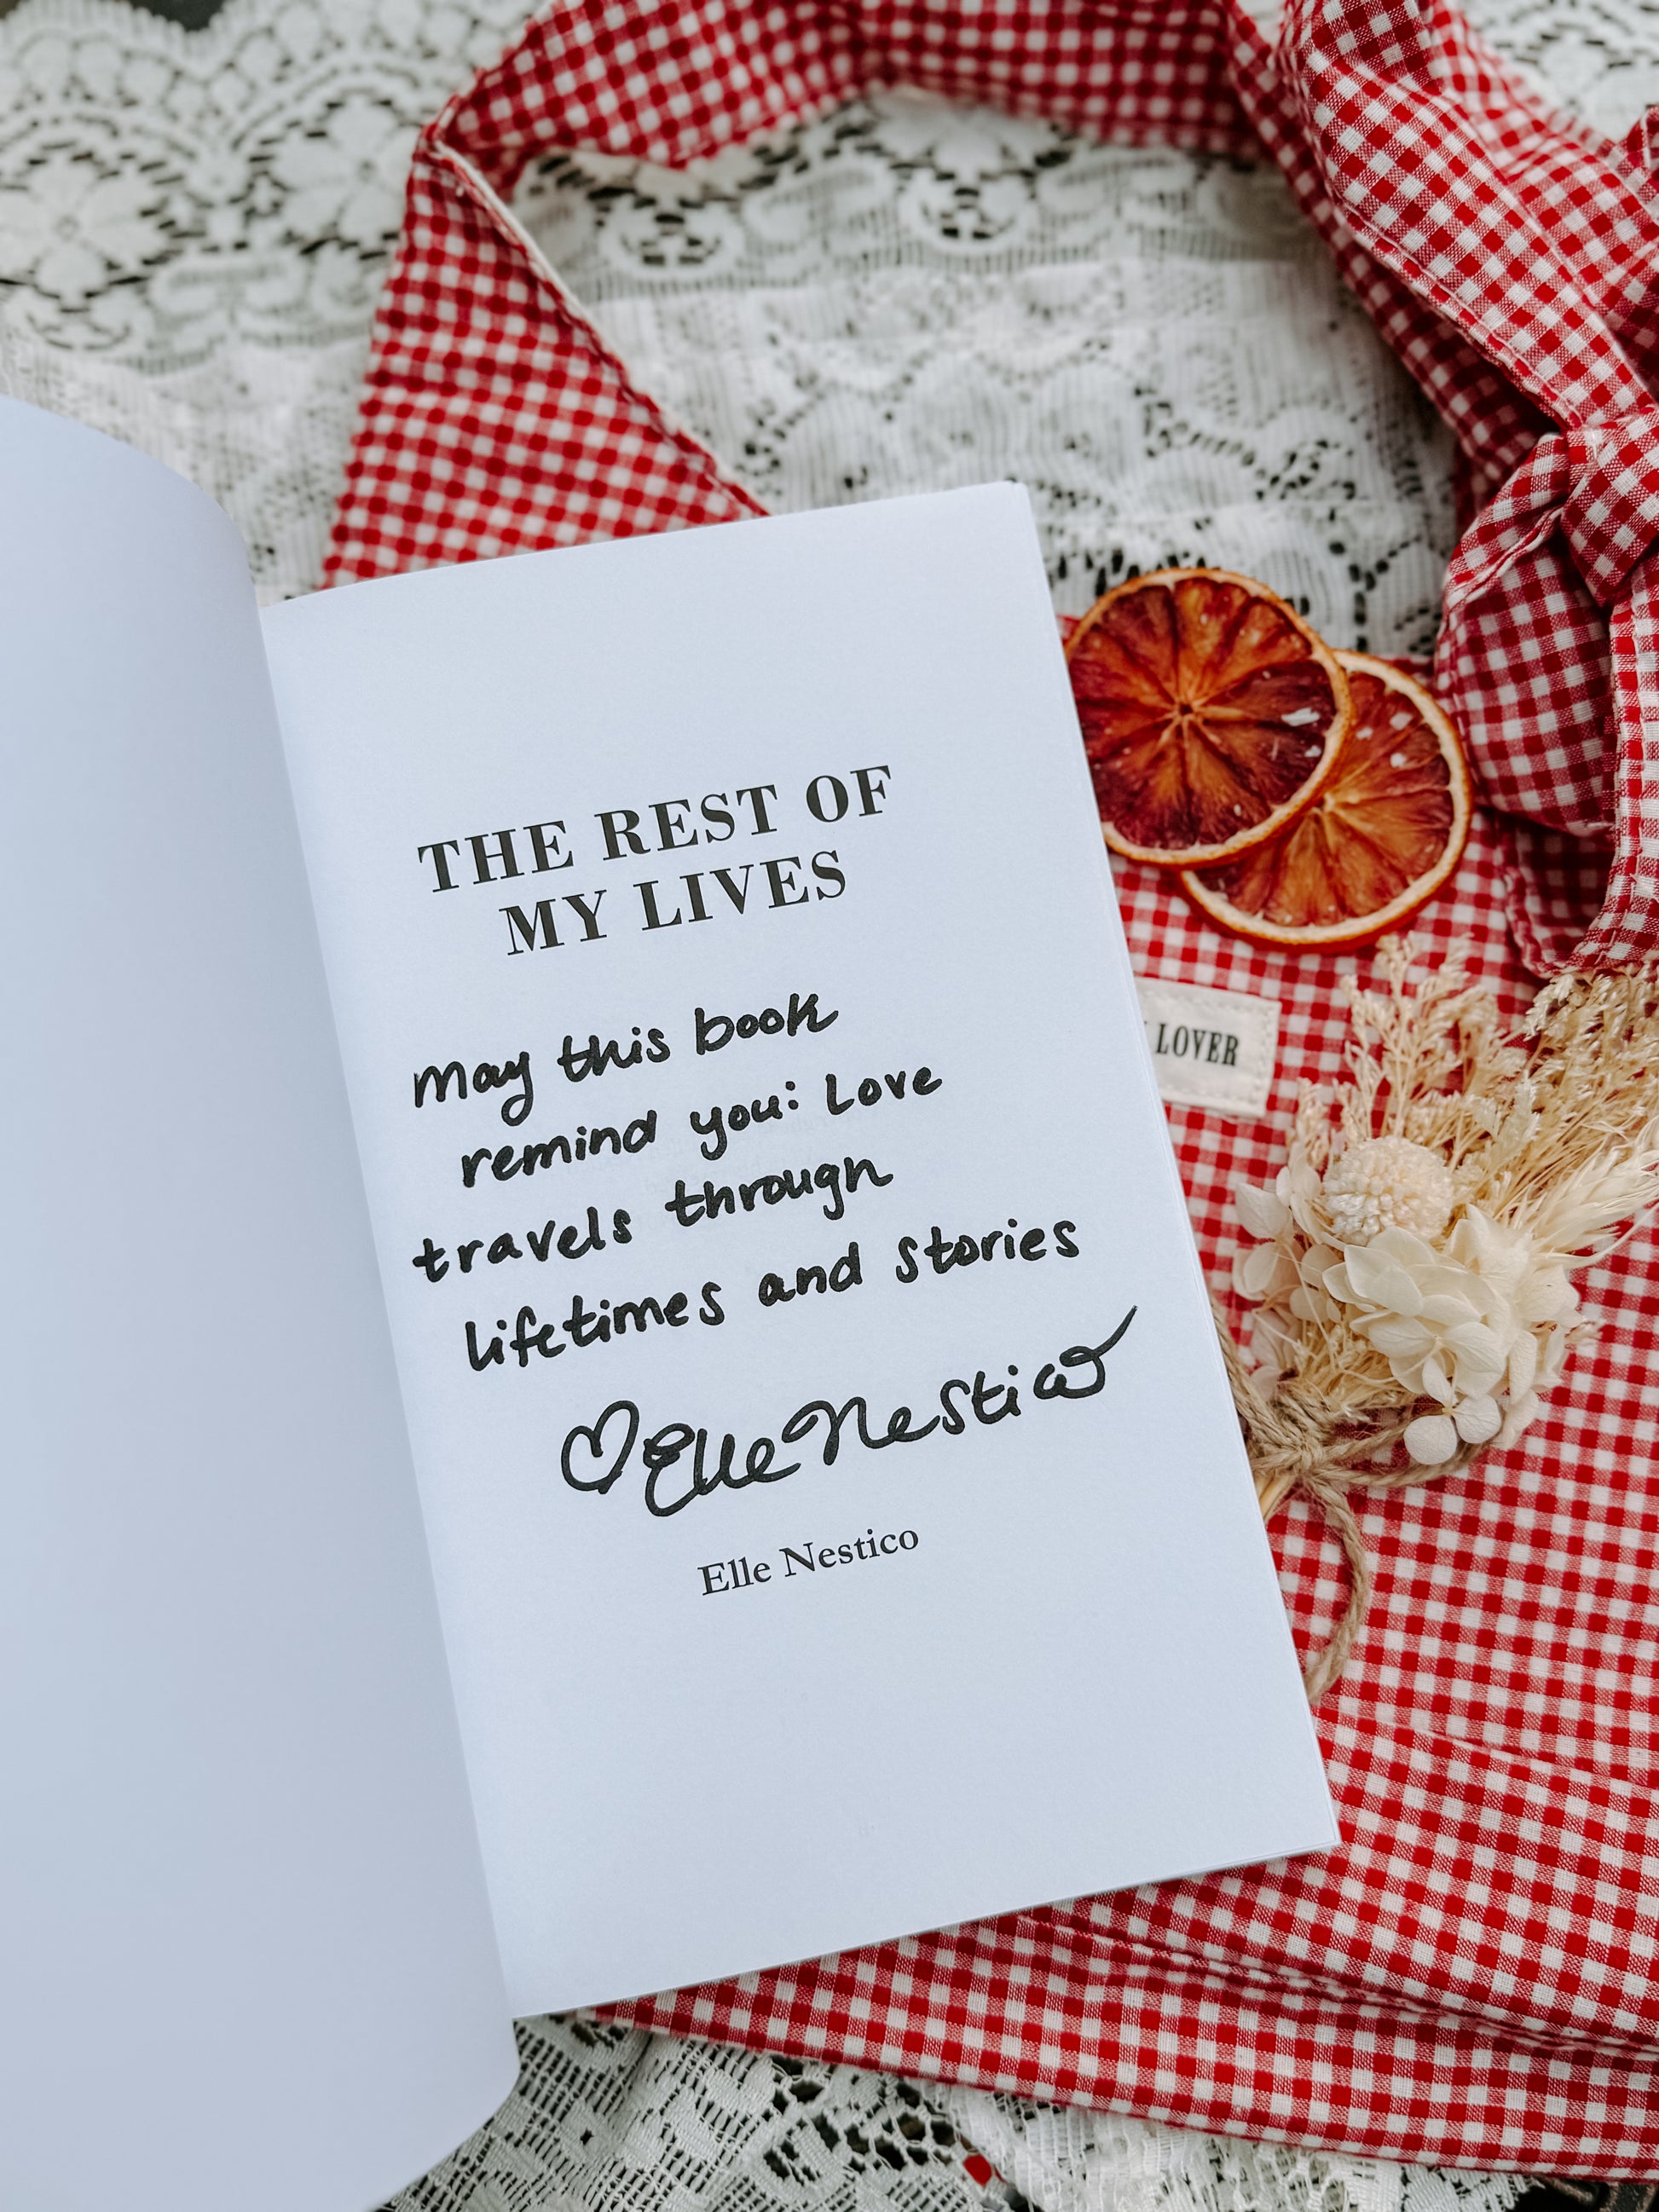 THE REST OF
MY LIVES
may this book
remind you: Love
travels through
lifetimes and stories
Elle Nestico
Elle Nestico
LOVER